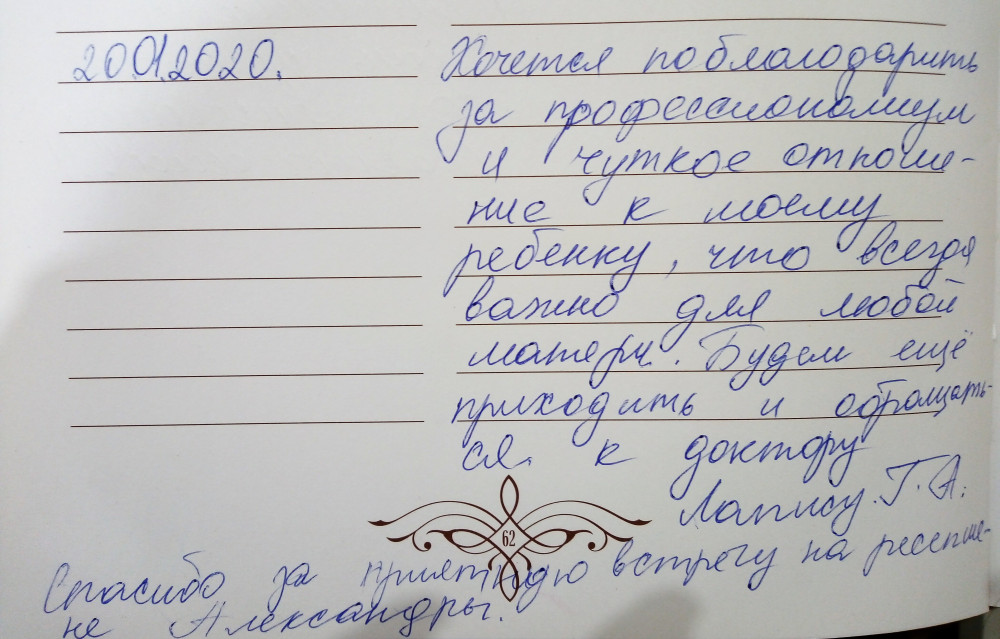 20.01.2020.
Хочется поблагодарить
за профессионализм
и чуткое отноше-
ние к моему
ребенку, что всегда
важно для любой
матери. Будем ещё
приходить и обращать-
ся к доктору
Лапису Г.А.
62
Спасибо за приятную встречу на ресепше-
не Александры.